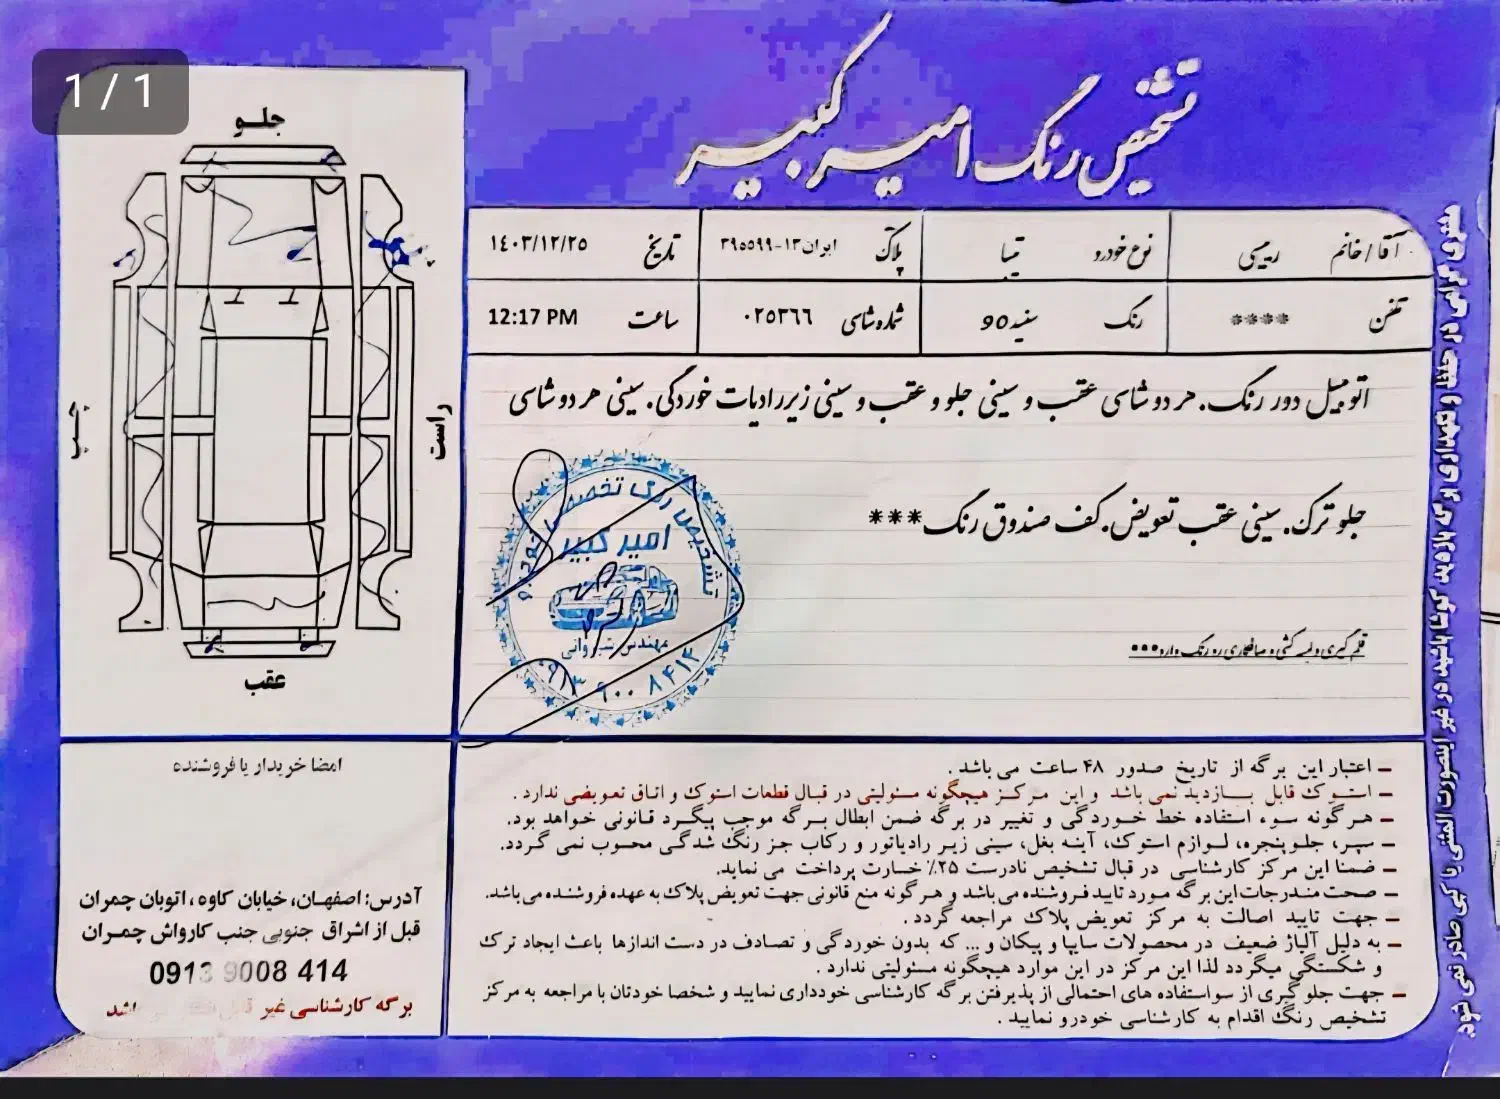 1 / 1
تشخیص رنگ امیرکبیر
آقا / خانم رییسی نوع خودرو تیبا پلاک ایران ۱۳-۳۹۵۵۹۹ تاریخ ۱٤۰۳/۱۲/۲۵
تلفن **** رنگ سفید90 شماره شاسی ۰۲۵۳٦٦ ساعت 12:17 PM
اتومبیل دور رنگ. هر دو شاسی عقب و سینی جلو و عقب و سینی زیر رادیات خوردگی. سینی هر دو شاسی
جلو ترک. سینی عقب تعویض. کف صندوق رنگ***
قلم گیری و لیسه کشی و صافکاری رو رنگ دارد***
جلو
چپ
راست
عقب
تشخیص رنگ تخصصی خودرو
امیر کبیر
مهندس شیروانی
۰۹۱۳ ۹۰۰ ۸۴۱۴
امضا خریدار یا فروشنده
آدرس: اصفهان، خیابان کاوه ، اتوبان چمران
قبل از اشراق جنوبی جنب کارواش چمران
0913 9008 414
برگه کارشناسی غیر
– اعتبار این برگه از تاریخ صدور ۴۸ ساعت می باشد .
– استوک قابل بازدید نمی باشد و این مرکز هیچگونه مسئولیتی در قبال قطعات استوک و اتاق تعویضی ندارد .
– هرگونه سوء استفاده خط خوردگی و تغییر در برگه ضمن ابطال برگه موجب پیگرد قانونی خواهد بود.
– سپر، جلوپنجره، لوازم استوک، آینه بغل، سینی زیر رادیاتور و رکاب جز رنگ شدگی محسوب نمی گردد.
– ضمنا این مرکز کارشناسی در قبال تشخیص نادرست ۲۵٪ خسارت پرداخت می نماید.
– صحت مندرجات این برگه مورد تایید فروشنده می باشد و هرگونه منع قانونی جهت تعویض پلاک به عهده فروشنده می باشد.
– جهت تایید اصالت به مرکز تعویض پلاک مراجعه گردد .
– به دلیل آلیاژ ضعیف در محصولات سایپا و پیکان و... که بدون خوردگی و تصادف در دست اندازها باعث ایجاد ترک
و شکستگی میگردد لذا این مرکز در این موارد هیچگونه مسئولیتی ندارد .
– جهت جلوگیری از سواستفاده های احتمالی از پذیرفتن برگه کارشناسی خودداری نمایید و شخصا خودتان با مراجعه به مرکز
تشخیص رنگ اقدام به کارشناسی خودرو نمایید .
مشتری گرامی در حفظ و نگهداری برگه بازدید کوشا باشید در غیر اینصورت المثنی یا کپی صادر نمی شود.